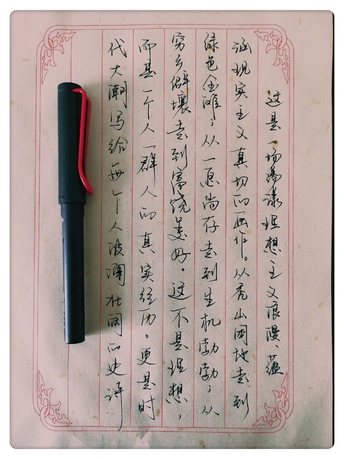 这是一场荡漾理想主义浪漫，蕴
涵现实主义真切的画作，从秃山困地走到
绿色金唯，从一息尚存走到生机勃勃，从
穷乡僻壤走到富饶美好。这不是理想，
而是一个人一群人的真实经历。更是时
代大潮写给一每一个人波澜壮阔的史诗